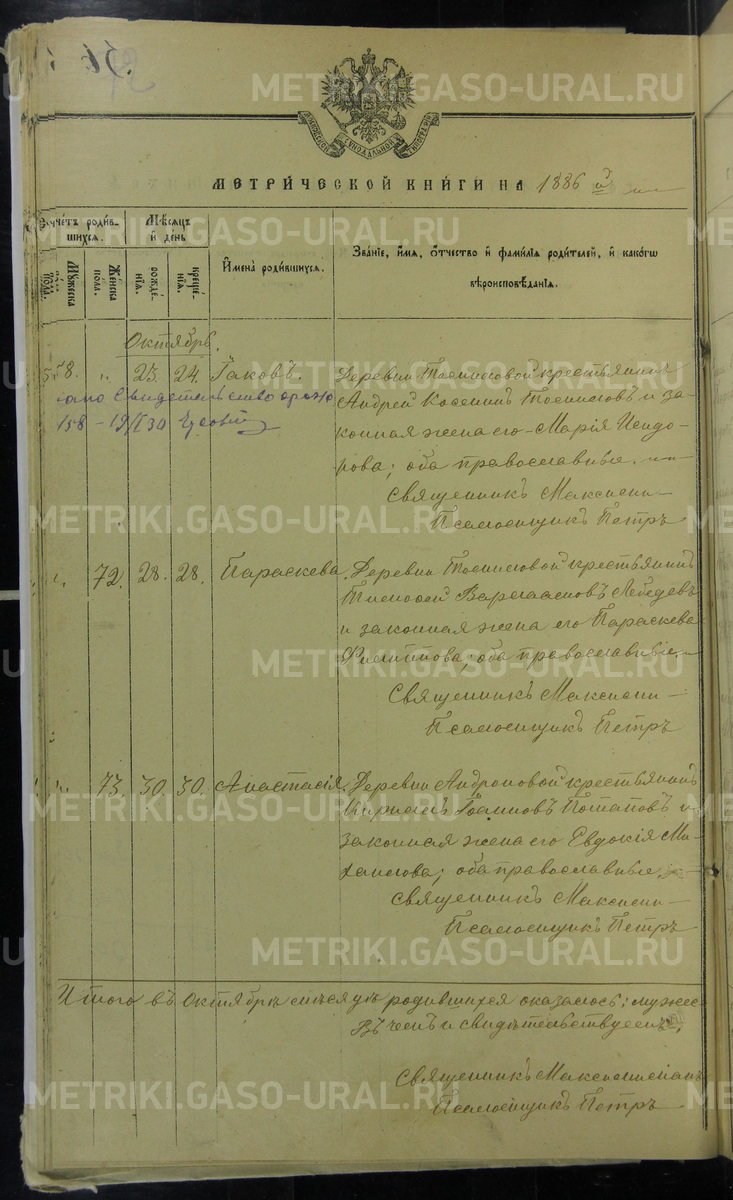 METRIKI.GASO-URAL.RU
МЕТРИ́ЧЕСКОЙ КНИ́ГИ НА 1886 й
Счетъ роди́в-
шихся.
Мѣсяцъ
и́ день
Мꙋжеска
пола.
Женска
пола.
рожде-
нїя.
креще-
нїя.
И҆мена̀ роди́вшихся.
Зва́нїе, и҆́мя, ѻ҆́тчество и҆ фами́лїя роди́телей, и҆ како́гѡ
вѣроисповѣ́данїя.
Октябрь.
58. „ 23. 24. Іаковъ.
Деревни крестьянинъ
Андрей и за-
конная жена его Марія Исидо-
рова; оба православные.
Священникъ Максими-
Псаломщикъ Петръ
Свидетельство
158 - 19
„ 72. 28. 28. Параскева.
Деревни крестьянинъ
Тимофей Варлаамовъ Лебедевъ
и законная жена его Параскева
Филиппова; оба православные.
Священникъ Максими-
Псаломщикъ Петръ
„ 73. 30. 30. Анастасія.
Деревни Андроновой крестьянинъ
Кириллъ Іоанновъ Поташовъ и
законная жена его Евдокія Ми-
хаилова; оба православные.
Священникъ Максими-
Псаломщикъ Петръ
Итого въ Октябрѣ мѣсяцѣ родившихся оказалось: мужес
Въ чемъ и свидѣтельствуемъ.
Священникъ Максимиліанъ
Псаломщикъ Петръ